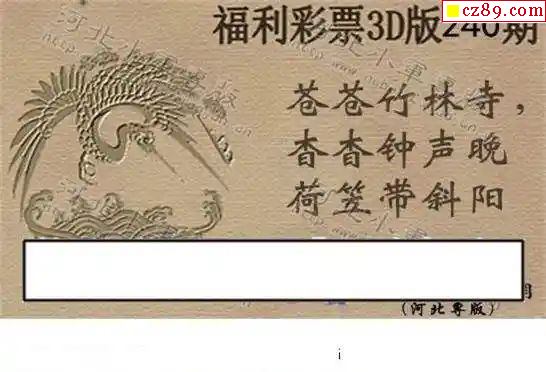 cz89.com
福利彩票3D版240期
苍苍竹林寺，
杳杳钟声晚
荷笠带斜阳
(河北專版)
i